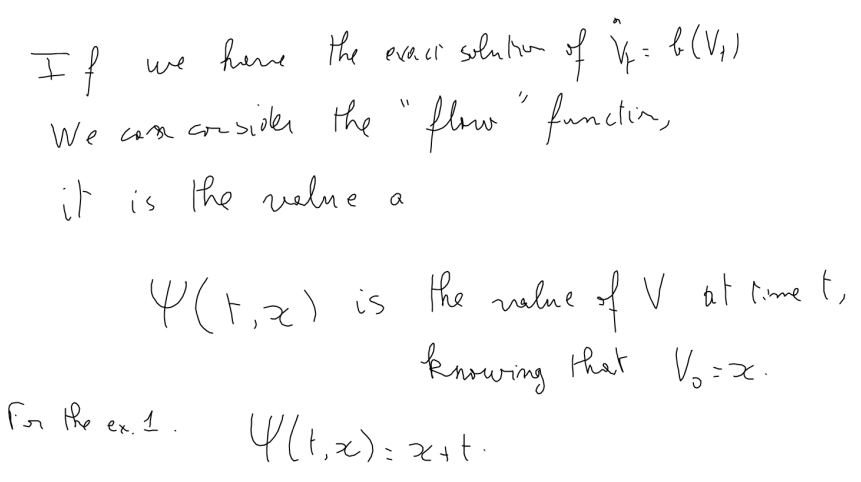 If we have the exact solution of V̇_t = b(V_t)
We can consider the "flow" function,
it is the value a
Ψ(t,x) is the value of V at time t,
knowing that V_0 = x.
For the ex. 1. Ψ(t,x) = x+t.